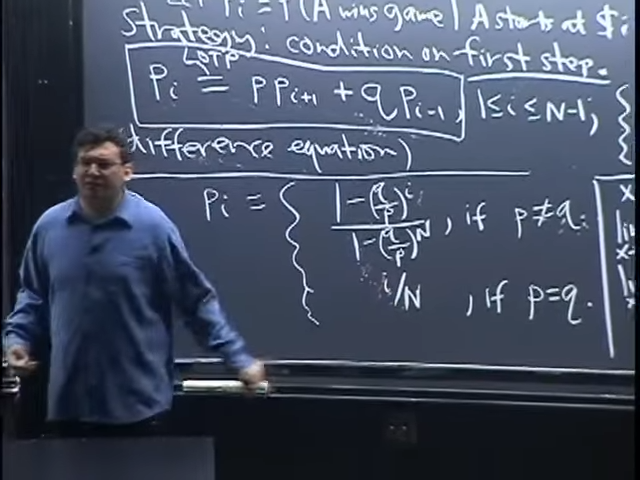 Let p_i = P(A wins game | A starts at $i
strategy: condition on first step.
p_i = p p_{i+1} + q p_{i-1}, 1≤i≤N-1,
LOTP
difference equation)
p_i = { 1-(q/p)^i / 1-(q/p)^N, if p≠q
i/N , if p=q.